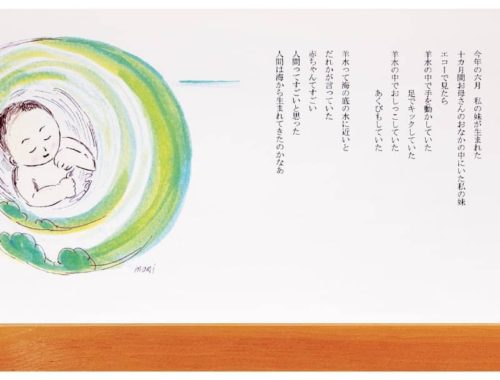 今年の六月　私の妹が生まれた
十カ月間お母さんのおなかの中にいた私の妹
エコーで見たら
羊水の中で手を動かしていた
足でキックしていた
羊水の中でおしっこしていた
あくびもしていた
羊水って海の底の水に近いと
だれかが言っていた
赤ちゃんてすごい
人間ってすごいと思った
人間は海から生まれてきたのかなあ
mari